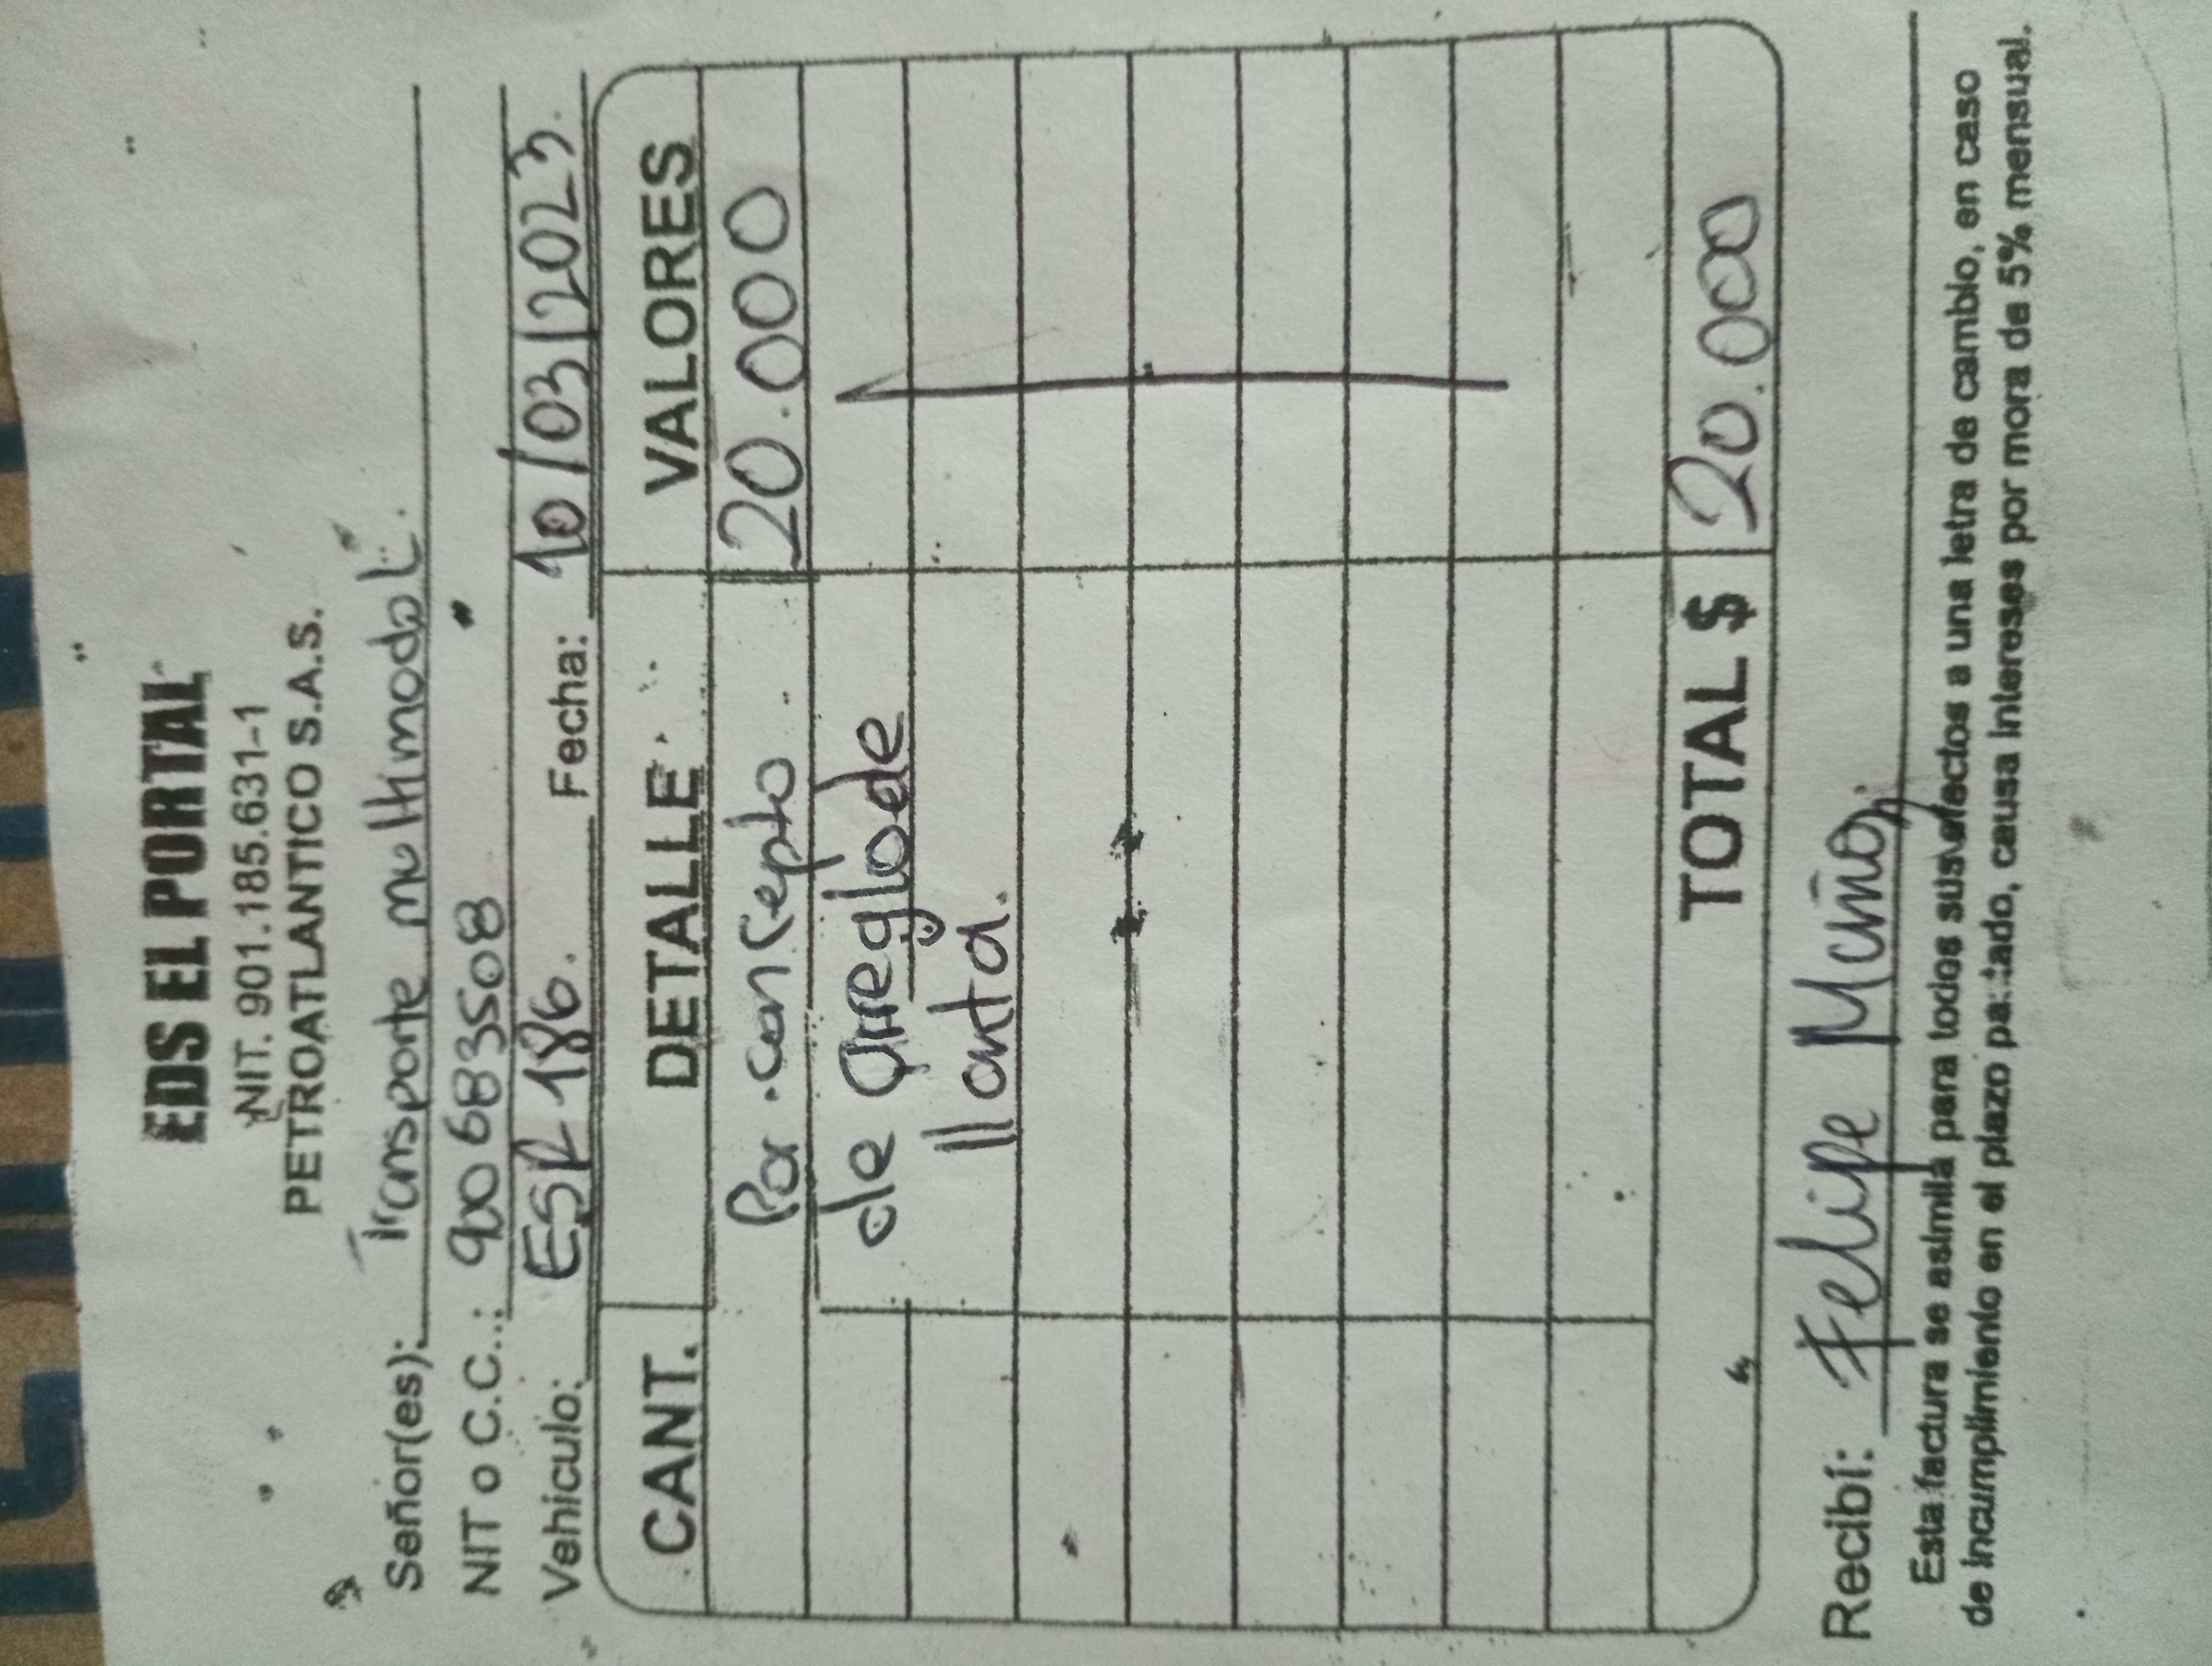 EDS EL PORTAL
NIT. 901.185.631-1
PETROATLANTICO S.A.S.
Señor(es): Transporte multimodal.
NIT o C.C..: 900683508
Vehiculo: ESR 186. Fecha: 10/03/2023.
CANT. DETALLE VALORES
Por concepto 20.000
de arreglo de
llanta.
TOTAL $ 20.000
Recibí: Felipe Muñoz
Esta factura se asimila para todos sus efectos a una letra de cambio, en caso
de incumplimiento en el plazo pactado, causa intereses por mora de 5% mensual.